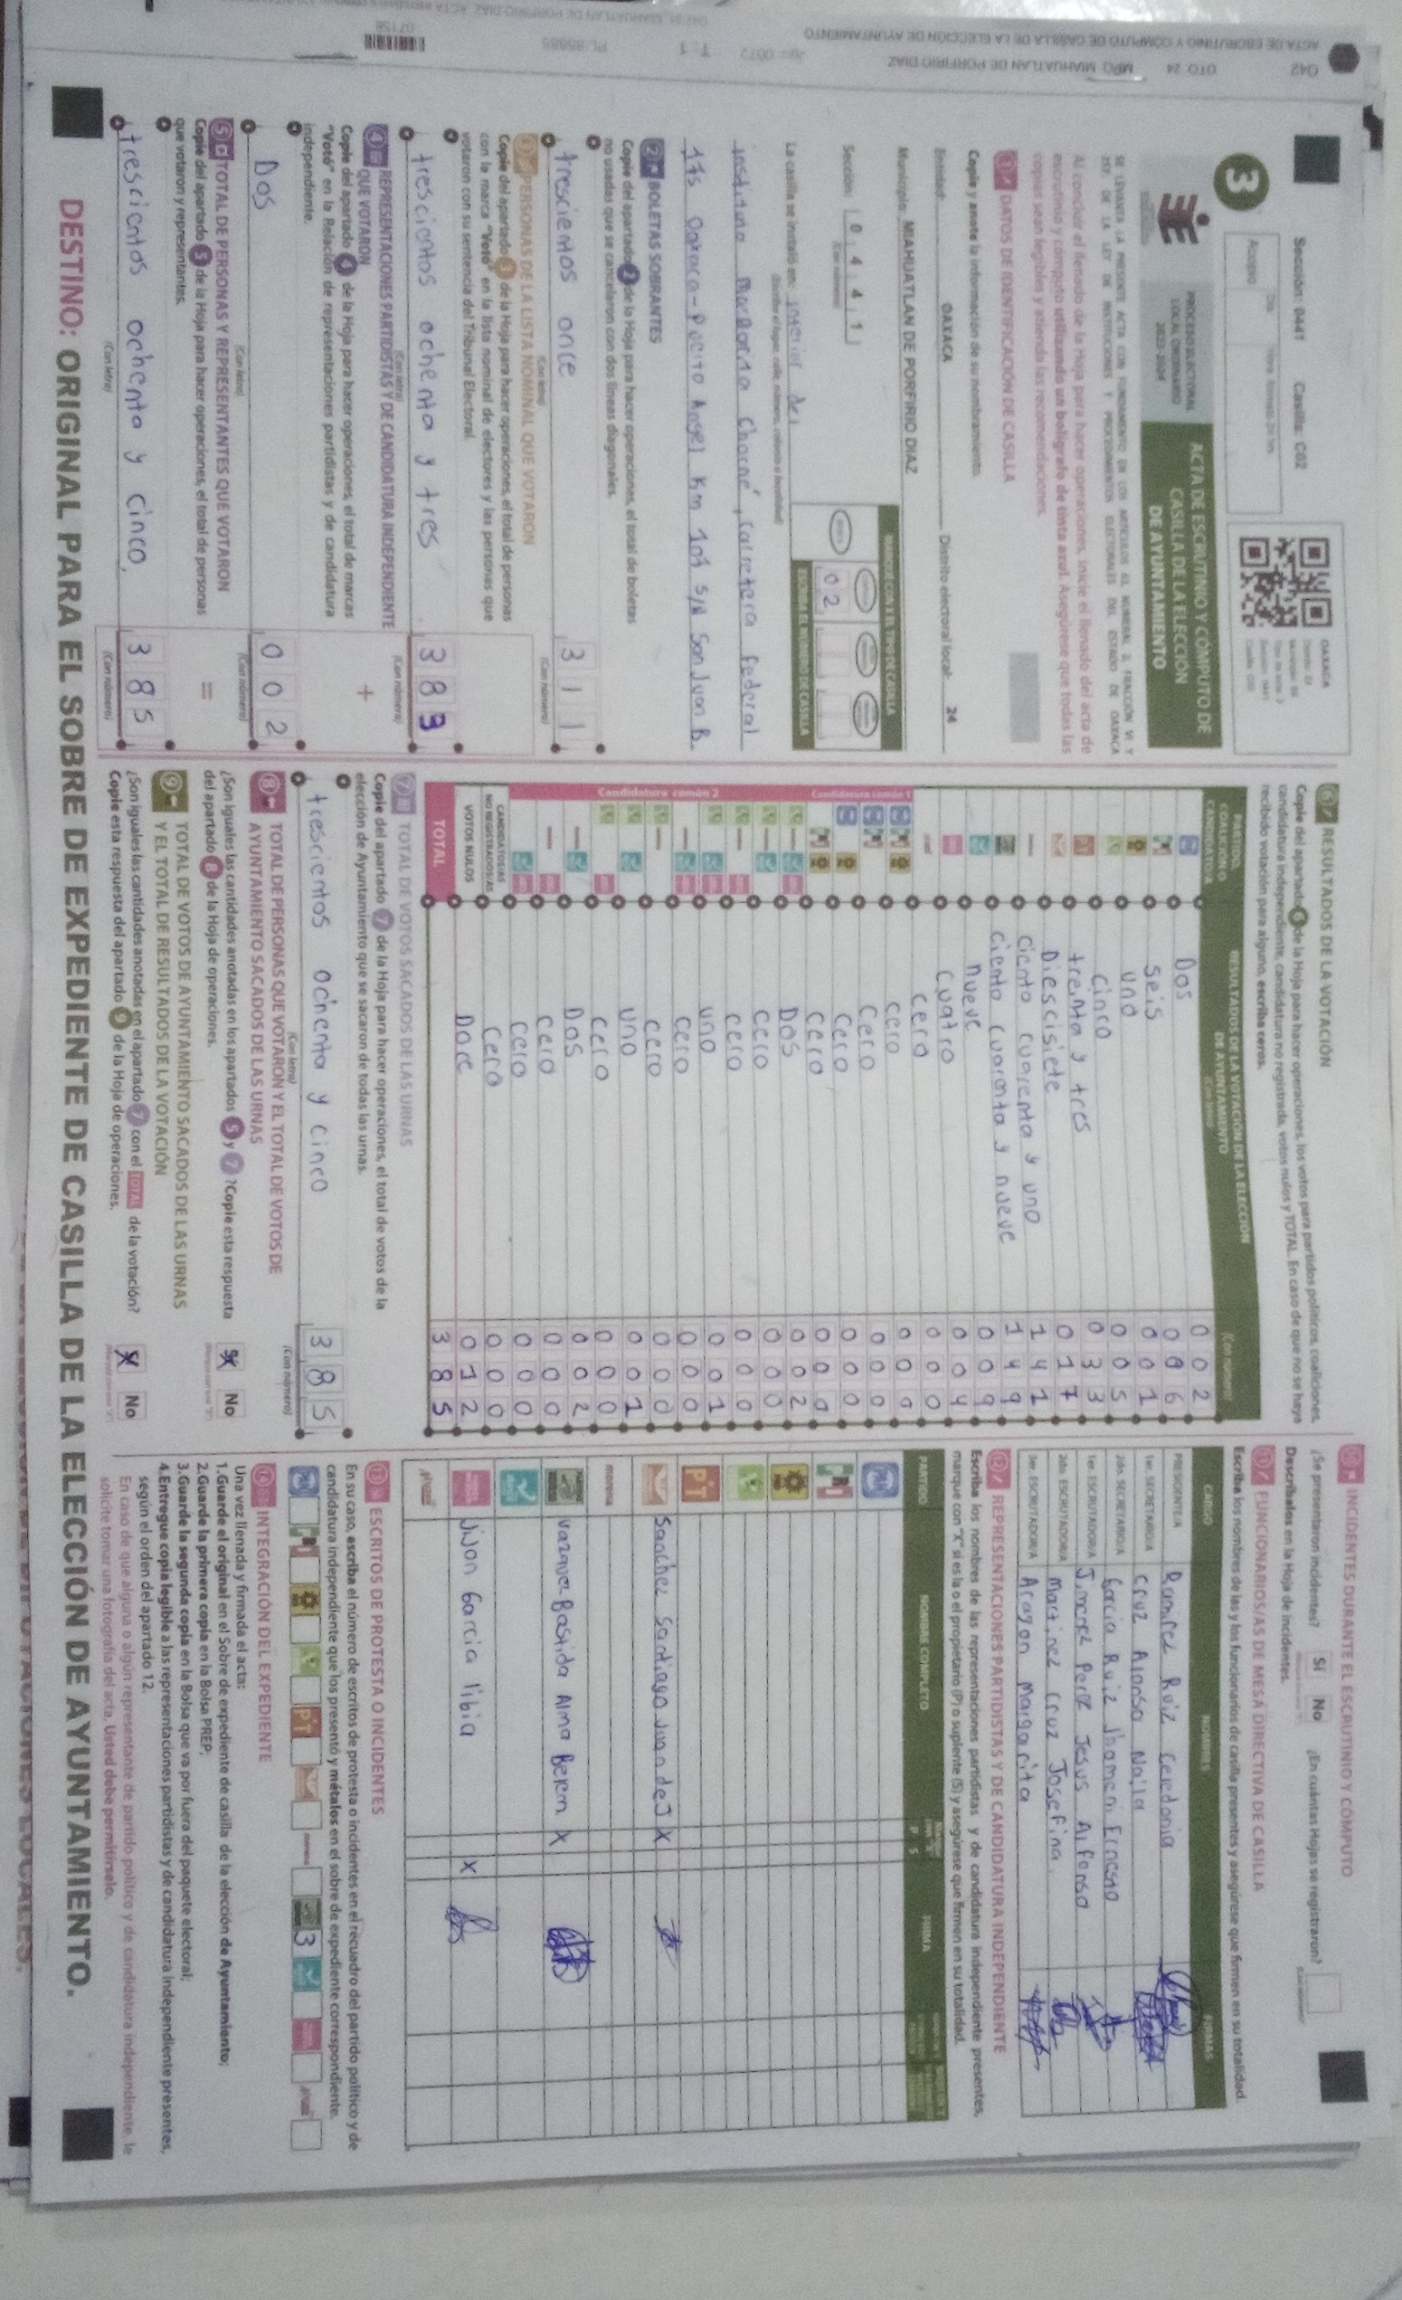 Sección: 0441 Casilla: C02
OAXACA
3
Acopio
PROCESO ELECTORAL
LOCAL ORDINARIO
2023-2024
ACTA DE ESCRUTINIO Y CÓMPUTO DE
CASILLA DE LA ELECCIÓN
DE AYUNTAMIENTO
Al concluir el llenado de la Hoja para hacer operaciones, inicie el llenado del acta de
escrutinio y cómputo utilizando un bolígrafo de tinta azul. Asegúrese que todas las
copias sean legibles y atienda las recomendaciones.
1 DATOS DE IDENTIFICACIÓN DE CASILLA
Copie y anote la información de su nombramiento.
Entidad: OAXACA Distrito electoral local: 24
Municipio: MIAHUATLAN DE PORFIRIO DIAZ
Sección: 0 4 4 1
MARQUE CON X EL TIPO DE CASILLA
ESCRIBA EL NÚMERO DE CASILLA
0 2
La casilla se instaló en: interior del
instituto
carretera federal
175 Oaxaca-Puerto Angel Km 104 S/N San Juan B.
2 BOLETAS SOBRANTES
Copie del apartado 2 de la Hoja para hacer operaciones, el total de boletas
no usadas que se cancelaron con dos líneas diagonales.
trescientos once 3 1 1
(Con letra) (Con número)
3 PERSONAS DE LA LISTA NOMINAL QUE VOTARON
Copie del apartado 3 de la Hoja para hacer operaciones, el total de personas
con la marca "Votó" en la lista nominal de electores y las personas que
votaron con su sentencia del Tribunal Electoral.
trescientos ochenta y tres 3 8 3
(Con letra) (Con número)
4 REPRESENTACIONES PARTIDISTAS Y DE CANDIDATURA INDEPENDIENTE
QUE VOTARON
Copie del apartado 4 de la Hoja para hacer operaciones, el total de marcas
"Votó" en la Relación de representaciones partidistas y de candidatura
independiente.
+
Dos 0 0 2
(Con letra) (Con número)
5 TOTAL DE PERSONAS Y REPRESENTANTES QUE VOTARON
Copie del apartado 5 de la Hoja para hacer operaciones, el total de personas
que votaron y representantes.
=
trescientos ochenta y cinco. 3 8 5
(Con letra) (Con número)
6 RESULTADOS DE LA VOTACIÓN
Copie del apartado 6 de la Hoja para hacer operaciones, los votos para partidos políticos, coaliciones,
candidatura independiente, candidatura no registrada, votos nulos y TOTAL. En caso de que no se haya
recibido votación para alguno, escriba ceros.
PARTIDO, COALICIÓN O CANDIDATURA
RESULTADOS DE LA VOTACIÓN DE LA ELECCIÓN
DE AYUNTAMIENTO
(Con letra) (Con número)
Dos 0 0 2
Seis 0 0 6
uno 0 0 1
Cinco 0 0 5
treinta y tres 0 3 3
Diescisiete 0 1 7
Ciento cuarenta y uno 1 4 1
Ciento cuarenta y nueve 1 4 9
nueve 0 0 9
Cuatro 0 0 4
cero 0 0 0
Candidatura común 1
cero 0 0 0
Cero 0 0 0
Cero 0 0 0
cero 0 0 0
Candidatura común 2
Dos 0 0 2
cero 0 0 0
cero 0 0 0
uno 0 0 1
cero 0 0 0
cero 0 0 0
uno 0 0 1
cero 0 0 0
Dos 0 0 2
cero 0 0 0
cero 0 0 0
CANDIDATOS/AS NO REGISTRADOS/AS cero 0 0 0
VOTOS NULOS Doce 0 1 2
TOTAL 3 8 5
7 TOTAL DE VOTOS SACADOS DE LAS URNAS
Copie del apartado 7 de la Hoja para hacer operaciones, el total de votos de la
elección de Ayuntamiento que se sacaron de todas las urnas.
trescientos ochenta y cinco 3 8 5
(Con letra) (Con número)
8 TOTAL DE PERSONAS QUE VOTARON Y EL TOTAL DE VOTOS DE
AYUNTAMIENTO SACADOS DE LAS URNAS
¿Son iguales las cantidades anotadas en los apartados 5 y 7? Copie esta respuesta
del apartado 8 de la Hoja de operaciones. X No
9 TOTAL DE VOTOS DE AYUNTAMIENTO SACADOS DE LAS URNAS
Y EL TOTAL DE RESULTADOS DE LA VOTACIÓN
¿Son iguales las cantidades anotadas en el apartado 7 con el TOTAL de la votación?
Copie esta respuesta del apartado 9 de la Hoja de operaciones. X No
10 INCIDENTES DURANTE EL ESCRUTINIO Y CÓMPUTO
¿Se presentaron incidentes? Sí No ¿En cuántas Hojas se registraron?
Descríbalos en la Hoja de incidentes.
11 FUNCIONARIOS/AS DE MESA DIRECTIVA DE CASILLA
Escriba los nombres de las y los funcionarios de casilla presentes y asegúrese que firmen en su totalidad.
CARGO NOMBRES FIRMAS
PRESIDENTE/A Ramirez Ruiz Celedonia
1er. SECRETARIO/A Cruz Alonso Naila
2do. SECRETARIO/A Garcia Ruiz Jhomeni Ernesto
1er. ESCRUTADOR/A Jimenez Perez Jesus Alfonso
2do. ESCRUTADOR/A Martinez Cruz Josefina
3er. ESCRUTADOR/A Aragon Margarita
12 REPRESENTACIONES PARTIDISTAS Y DE CANDIDATURA INDEPENDIENTE
Escriba los nombres de las representaciones partidistas y de candidatura independiente presentes,
marque con "X" si es la o el propietario (P) o suplente (S) y asegúrese que firmen en su totalidad.
PARTIDO NOMBRE COMPLETO P S FIRMA
PAN
PRI
PRD
PT
Sanchez Santiago Juan de J X
morena
vazquez Bastida Alma Belem X
Jijon Garcia libia X
13 ESCRITOS DE PROTESTA O INCIDENTES
En su caso, escriba el número de escritos de protesta o incidentes en el recuadro del partido político y de
candidatura independiente que los presentó y métalos en el sobre de expediente correspondiente.
PT 3
14 INTEGRACIÓN DEL EXPEDIENTE
Una vez llenada y firmada el acta:
1.Guarde el original en el Sobre de expediente de casilla de la elección de Ayuntamiento;
2.Guarde la primera copia en la Bolsa PREP;
3.Guarde la segunda copia en la Bolsa que va por fuera del paquete electoral;
4.Entregue copia legible a las representaciones partidistas y de candidatura independiente presentes,
según el orden del apartado 12.
En caso de que alguna o algún representante de partido político y de candidatura independiente, le
solicite tomar una fotografía del acta, Usted debe permitírselo.
DESTINO: ORIGINAL PARA EL SOBRE DE EXPEDIENTE DE CASILLA DE LA ELECCIÓN DE AYUNTAMIENTO.
042 DTO. 24 MPO. MIAHUATLAN DE PORFIRIO DIAZ
ACTA DE ESCRUTINIO Y CÓMPUTO DE CASILLA DE LA ELECCIÓN DE AYUNTAMIENTO